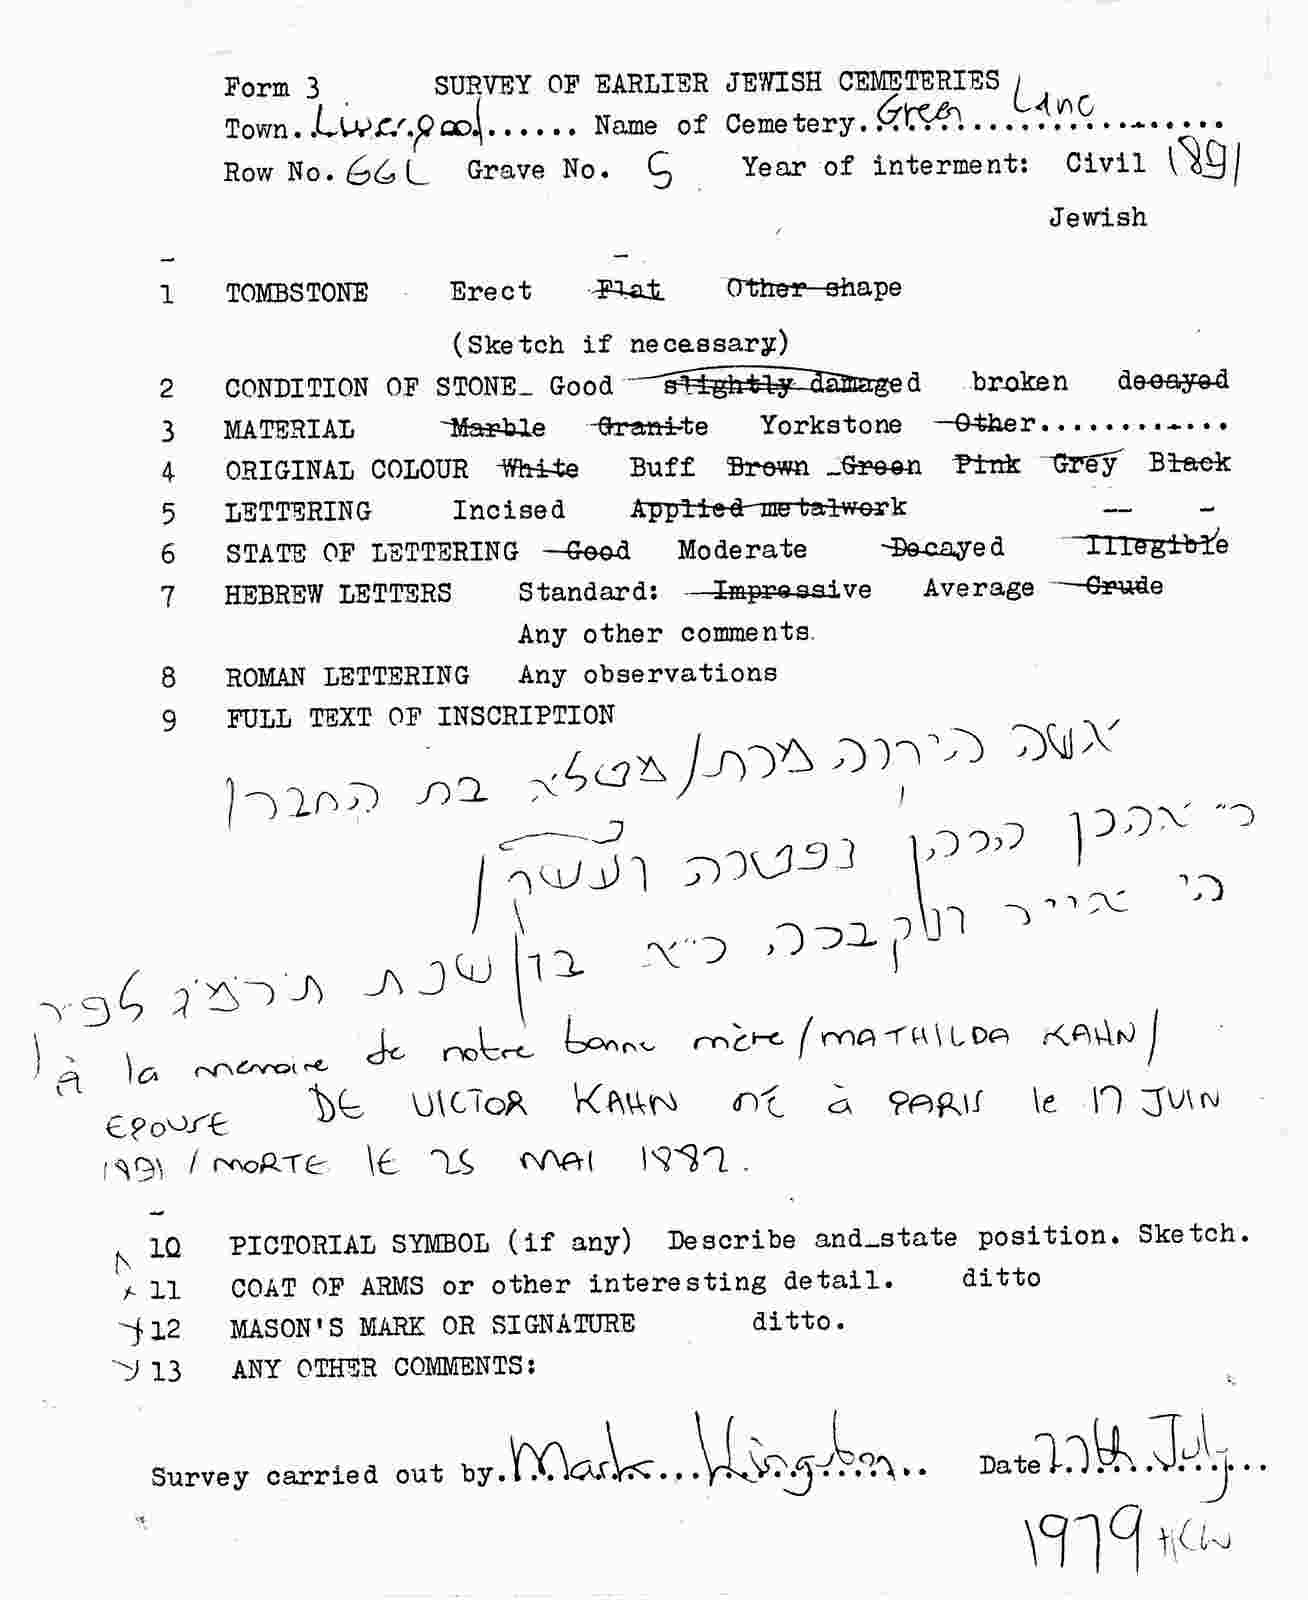 Form 3 SURVEY OF EARLIER JEWISH CEMETERIES
Town. Liverpool...... Name of Cemetery. Green Lane
Row No. 66L Grave No. 5 Year of interment: Civil 1891
Jewish
1 TOMBSTONE Erect Flat Other shape
(Sketch if necessary)
2 CONDITION OF STONE_ Good slightly damaged broken decayed
3 MATERIAL Marble Granite Yorkstone Other............
4 ORIGINAL COLOUR White Buff Brown Green Pink Grey Black
5 LETTERING Incised Applied metalwork
6 STATE OF LETTERING Good Moderate Decayed Illegible
7 HEBREW LETTERS Standard: Impressive Average Crude
Any other comments.
8 ROMAN LETTERING Any observations
9 FULL TEXT OF INSCRIPTION
אשה היקרה מרת / מטלא בת החבר /
ר" אהרן הכהן נפטרה
ה' אייר ונקברה בו שנת לפ"ק /
à la memoire de notre bonne mère / MATHILDA KAHN /
EPOUSE DE VICTOR KAHN né à PARIS le 17 JUIN
/ MORTE lE 25 MAI 1882.
10 PICTORIAL SYMBOL (if any) Describe and_state position. Sketch.
11 COAT OF ARMS or other interesting detail. ditto
12 MASON'S MARK OR SIGNATURE ditto.
13 ANY OTHER COMMENTS:
Survey carried out by. Mark Kingston Date 27th July
1979